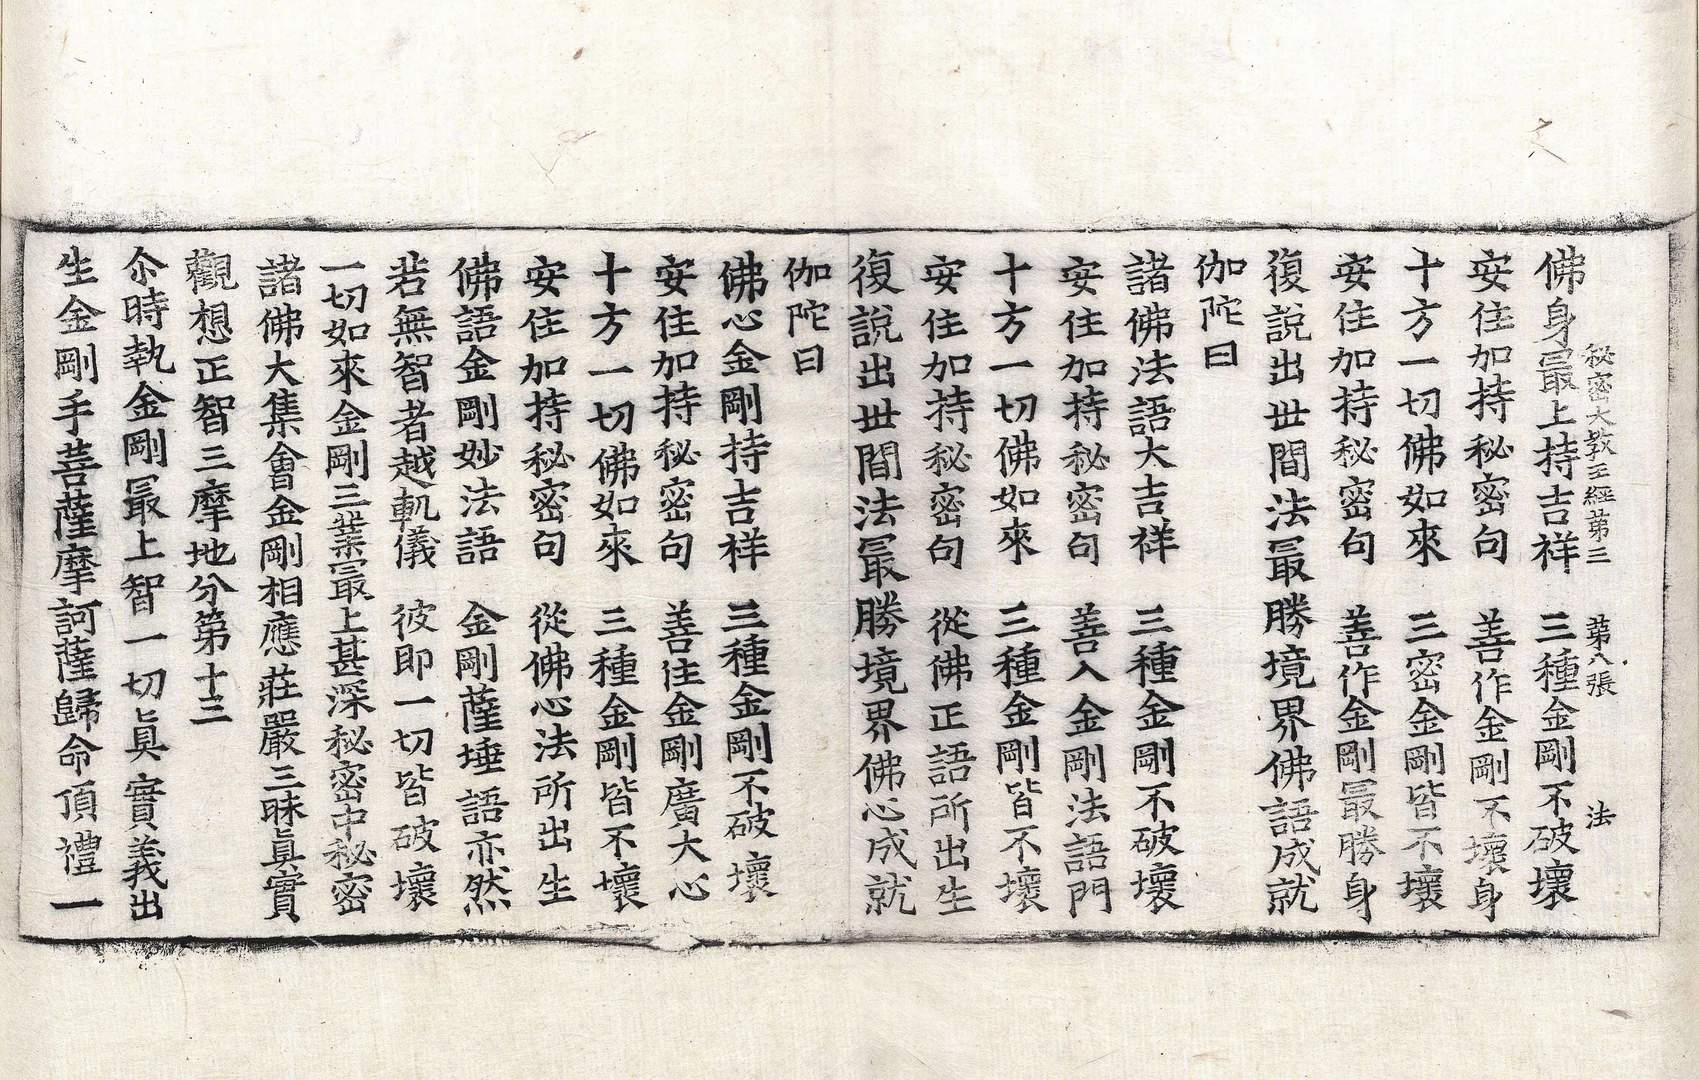 秘密大教王經第三　第八張　法
佛身最上持吉祥　三種金剛不破壞
安住加持秘密句　善作金剛不壞身
十方一切佛如來　三密金剛皆不壞
安住加持秘密句　善作金剛最勝身
復說出世間法最勝境界佛語成就
伽陀曰
諸佛法語大吉祥　三種金剛不破壞
安住加持秘密句　善入金剛法語門
十方一切佛如來　三種金剛皆不壞
安住加持秘密句　從佛正語所出生
復說出世間法最勝境界佛心成就
伽陀曰
佛心金剛持吉祥　三種金剛不破壞
安住加持秘密句　善住金剛廣大心
十方一切佛如來　三種金剛皆不壞
安住加持秘密句　從佛心法所出生
佛語金剛妙法語　金剛薩埵語亦然
若無智者越軌儀　彼即一切皆破壞
一切如來金剛三業最上甚深秘密中秘密
諸佛大集會金剛相應莊嚴三昧眞實
觀想正智三摩地分第十三
尒時執金剛最上智一切眞實義出
生金剛手菩薩摩訶薩歸命頂禮一